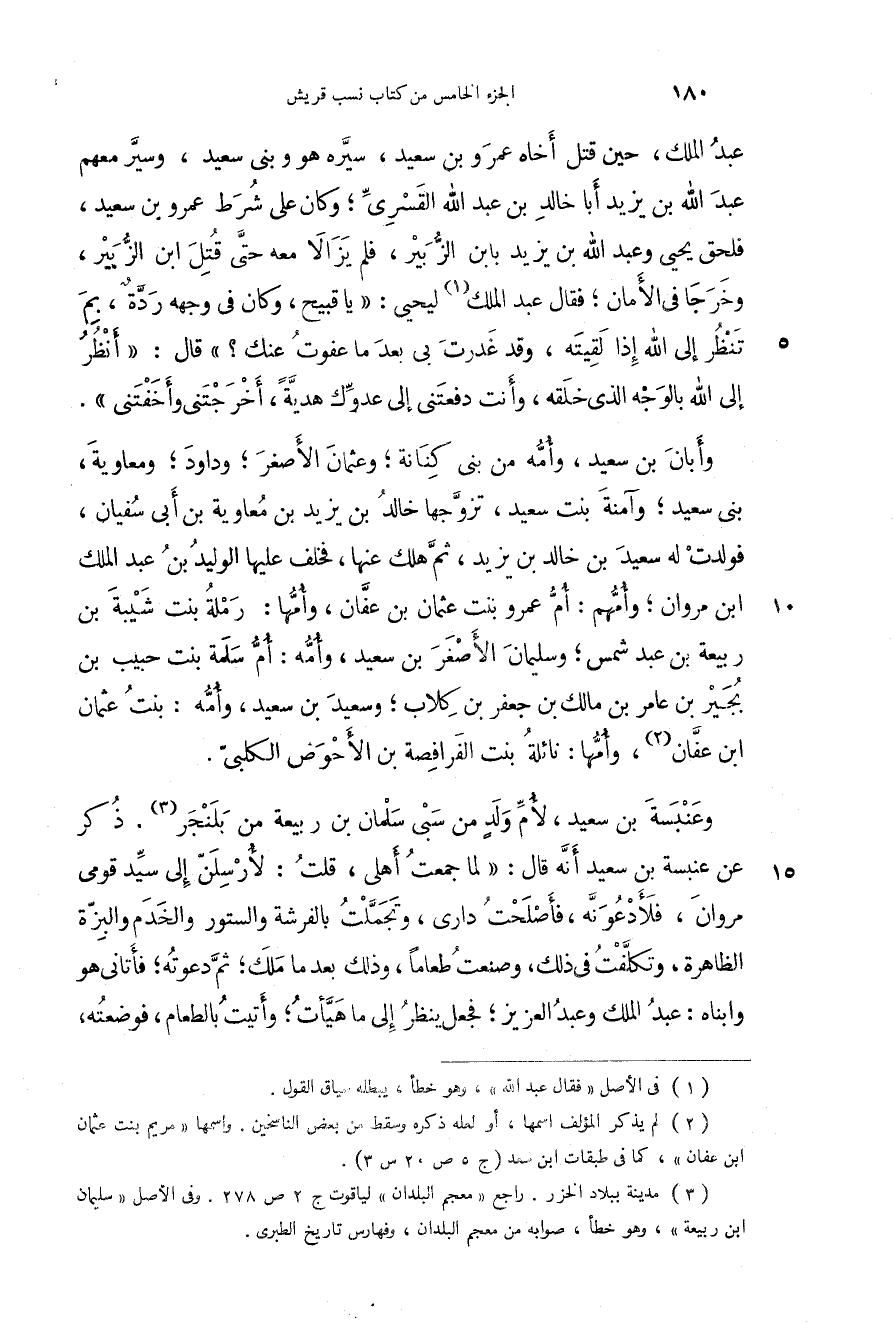 ١٨٠ الجزء الخامس من كتاب نسب قريش
عبدُ الملك، حين قتل أخاه عمرَو بن سعيد، سيَّره هو وبنى سعيد، وسيَّر معهم
عبدَ الله بن يزيد أبا خالدِ بن عبد الله القَسْرِىِّ؛ وكان على شُرَط عمرو بن سعيد،
فلحق يحيى وعبد الله بن يزيد بابن الزُّبَيْر، فلم يَزَالَا معه حتَّى قُتِلَ ابن الزُّبَيْر،
وخَرَجَا فى الأمان؛ فقال عبد الملك(١) ليحيى: « يا قبيح، وكان فى وجهه رَدَّةٌ، بِمَ
٥ تَنْظُر إلى الله إذا لَقِيتَه، وقد غَدرتَ بى بعدَ ما عفوتُ عنك؟ » قال: « أَنْظُرُ
إلى الله بالوَجْه الذى خلَقه، وأنت دفعتَنى إلى عدوِّك هديَّةً، أَخْرَجْتَنى وأَخَفْتَنى ».
وأبانَ بن سعيد، وأُمُّه من بنى كِنَانة؛ وعثمانَ الأصغرَ؛ وداودَ؛ ومعاويةَ،
بنى سعيد؛ وآمنةَ بنت سعيد، تزوَّجها خالدُ بن يزيد بن مُعاوية بن أبى سُفيان،
فولدتْ له سعيدَ بن خالد بن يزيد، ثمَّ هلك عنها، فخلف عليها الوليدُ بنُ عبد الملك
١٠ ابن مروان؛ وأُمُّهم: أمُّ عمرو بنت عثمان بن عفَّان، وأُمُّها: رَمْلةُ بنت شَيْبةَ بن
ربيعة بن عبد شمس؛ وسليمانَ الأصْغَرَ بن سعيد، وأُمُّه: أُمُّ سَلَمة بنت حبيب بن
بُجَيْر بن عامر بن مالك بن جعفر بن كِلاب؛ وسعيدَ بن سعيد، وأُمُّه: بنتُ عثمان
ابن عفَّان(٢)، وأُمُّها: نائلةُ بنت الفَرافِصة بن الأَحْوَص الكلبىّ.
وعَنْبَسةَ بن سعيد، لأُمِّ وَلَدٍ من سَبْى سَلْمان بن ربيعة من بَلَنْجَر(٣). ذُكر
١٥ عن عنبسة بن سعيد أنَّه قال: « لما جمعتُ أهلى، قلتُ: لأُرْسِلَنّ إلى سيِّد قومى
مروانَ، فلَأَدْعُوَنَّه، فأصْلَحْتُ دارى، وتَجَمَّلْتُ بالفرشة والستور والخَدَم والبِزّة
الظاهرة، وتكلَّفْتُ فى ذلك، وصنعتُ طعاماً، وذلك بعد ما مَلَكَ؛ ثمَّ دعوتُه؛ فأتانى هو
وابناه: عبدُ الملك وعبدُ العزيز؛ فجعل ينظرُ إلى ما هَيَّأتُ؛ وأتيتُ بالطعام، فوضعتُه،
(١) فى الأصل « فقال عبد الله »، وهو خطأ، يبطله سياق القول.
(٢) لم يذكر المؤلف اسمها، أو لعله ذكره وسقط من بعض الناسخين. واسمها « مريم بنت عثمان
ابن عفان »، كما فى طبقات ابن سعد (ج ٥ ص ٢٠ س ٣).
(٣) مدينة ببلاد الخزر. راجع « معجم البلدان » لياقوت ج ٢ ص ٢٧٨. وفى الأصل « سليمان
ابن ربيعة »، وهو خطأ، صوابه من معجم البلدان، وفهارس تاريخ الطبرى.